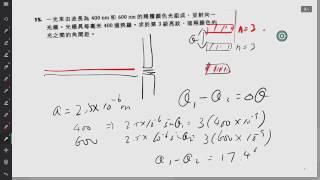 15. 一光束由波長為 400 nm 和 600 nm 的兩種顏色光組成，並射向一
光柵。光柵具每毫米 400 道狹縫。求於第 3 級亮紋，這兩顏色的
光之間的角間距。
n=3
n=3
a = 2.5x10⁻⁶ m
θ₁ - θ₂ = θ
400 ⇒ 2.5x10⁻⁶ sinθ₁ = 3(400x10⁻⁹)
600 2.5x10⁻⁶ sinθ₂ = 3(600x10⁻⁹)
θ₁ - θ₂ = 17.4°